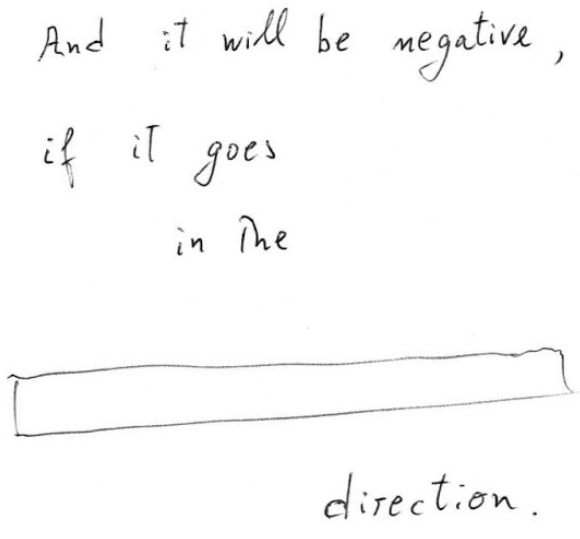 And it will be negative,
if it goes
in the
direction.